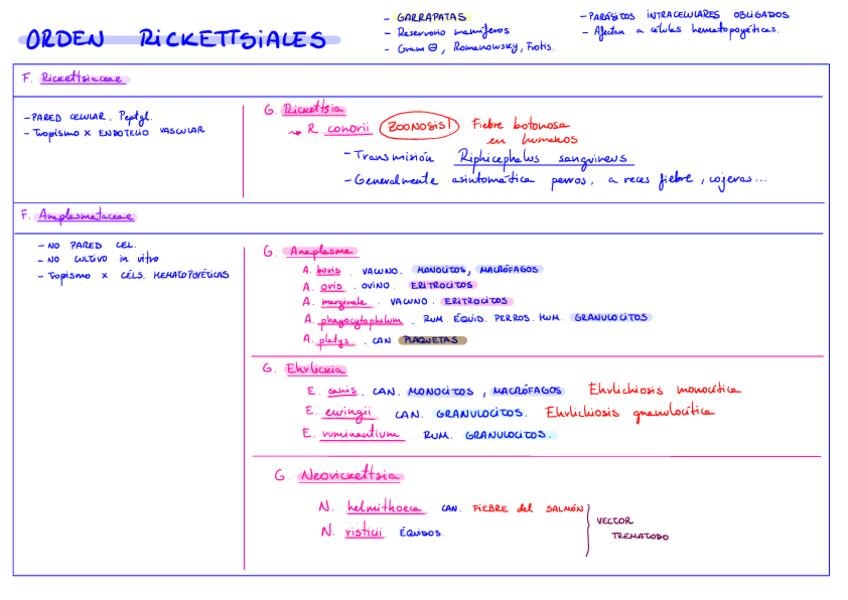 ORDEN RICKETTSIALES
- GARRAPATAS
- Reservorio mamíferos
- Gram ⊖, Romanowsky, Frotis.
- PARÁSITOS INTRACELULARES OBLIGADOS
- Afectan a células hematopoyéticas.
F. Rickettsiaceae
- PARED CELULAR, Peptgl.
- Tropismo x ENDOTELIO VASCULAR
G. Rickettsia
→ R. conorii ZOONOSIS! Fiebre botonosa
en humanos
- Transmisión Riphicephalus sanguineus
- Generalmente asintomática perros, a veces fiebre, cojeras...
F. Anaplasmataceae
- NO PARED CEL.
- NO CULTIVO in vitro
- Tropismo x CÉLS. HEMATOPOYÉTICAS
G. Anaplasma
A. bovis. VACUNO. MONOCITOS, MACRÓFAGOS
A. ovis. OVINO. ERITROCITOS
A. marginale. VACUNO. ERITROCITOS
A. phagocytophilum. RUM. ÉQUID. PERROS. HUM. GRANULOCITOS
A. platys. CAN PLAQUETAS
G. Ehrlickia
E. canis. CAN. MONOCITOS, MACRÓFAGOS Ehrlichiosis monocítica
E. ewingii CAN. GRANULOCITOS. Ehrlichiosis granulocítica
E. ruminantium RUM. GRANULOCITOS.
G. Neorickettsia
N. helmithoeca CAN. FIEBRE del SALMÓN
N. risticii ÉQUIDOS.
VECTOR
TREMATODO